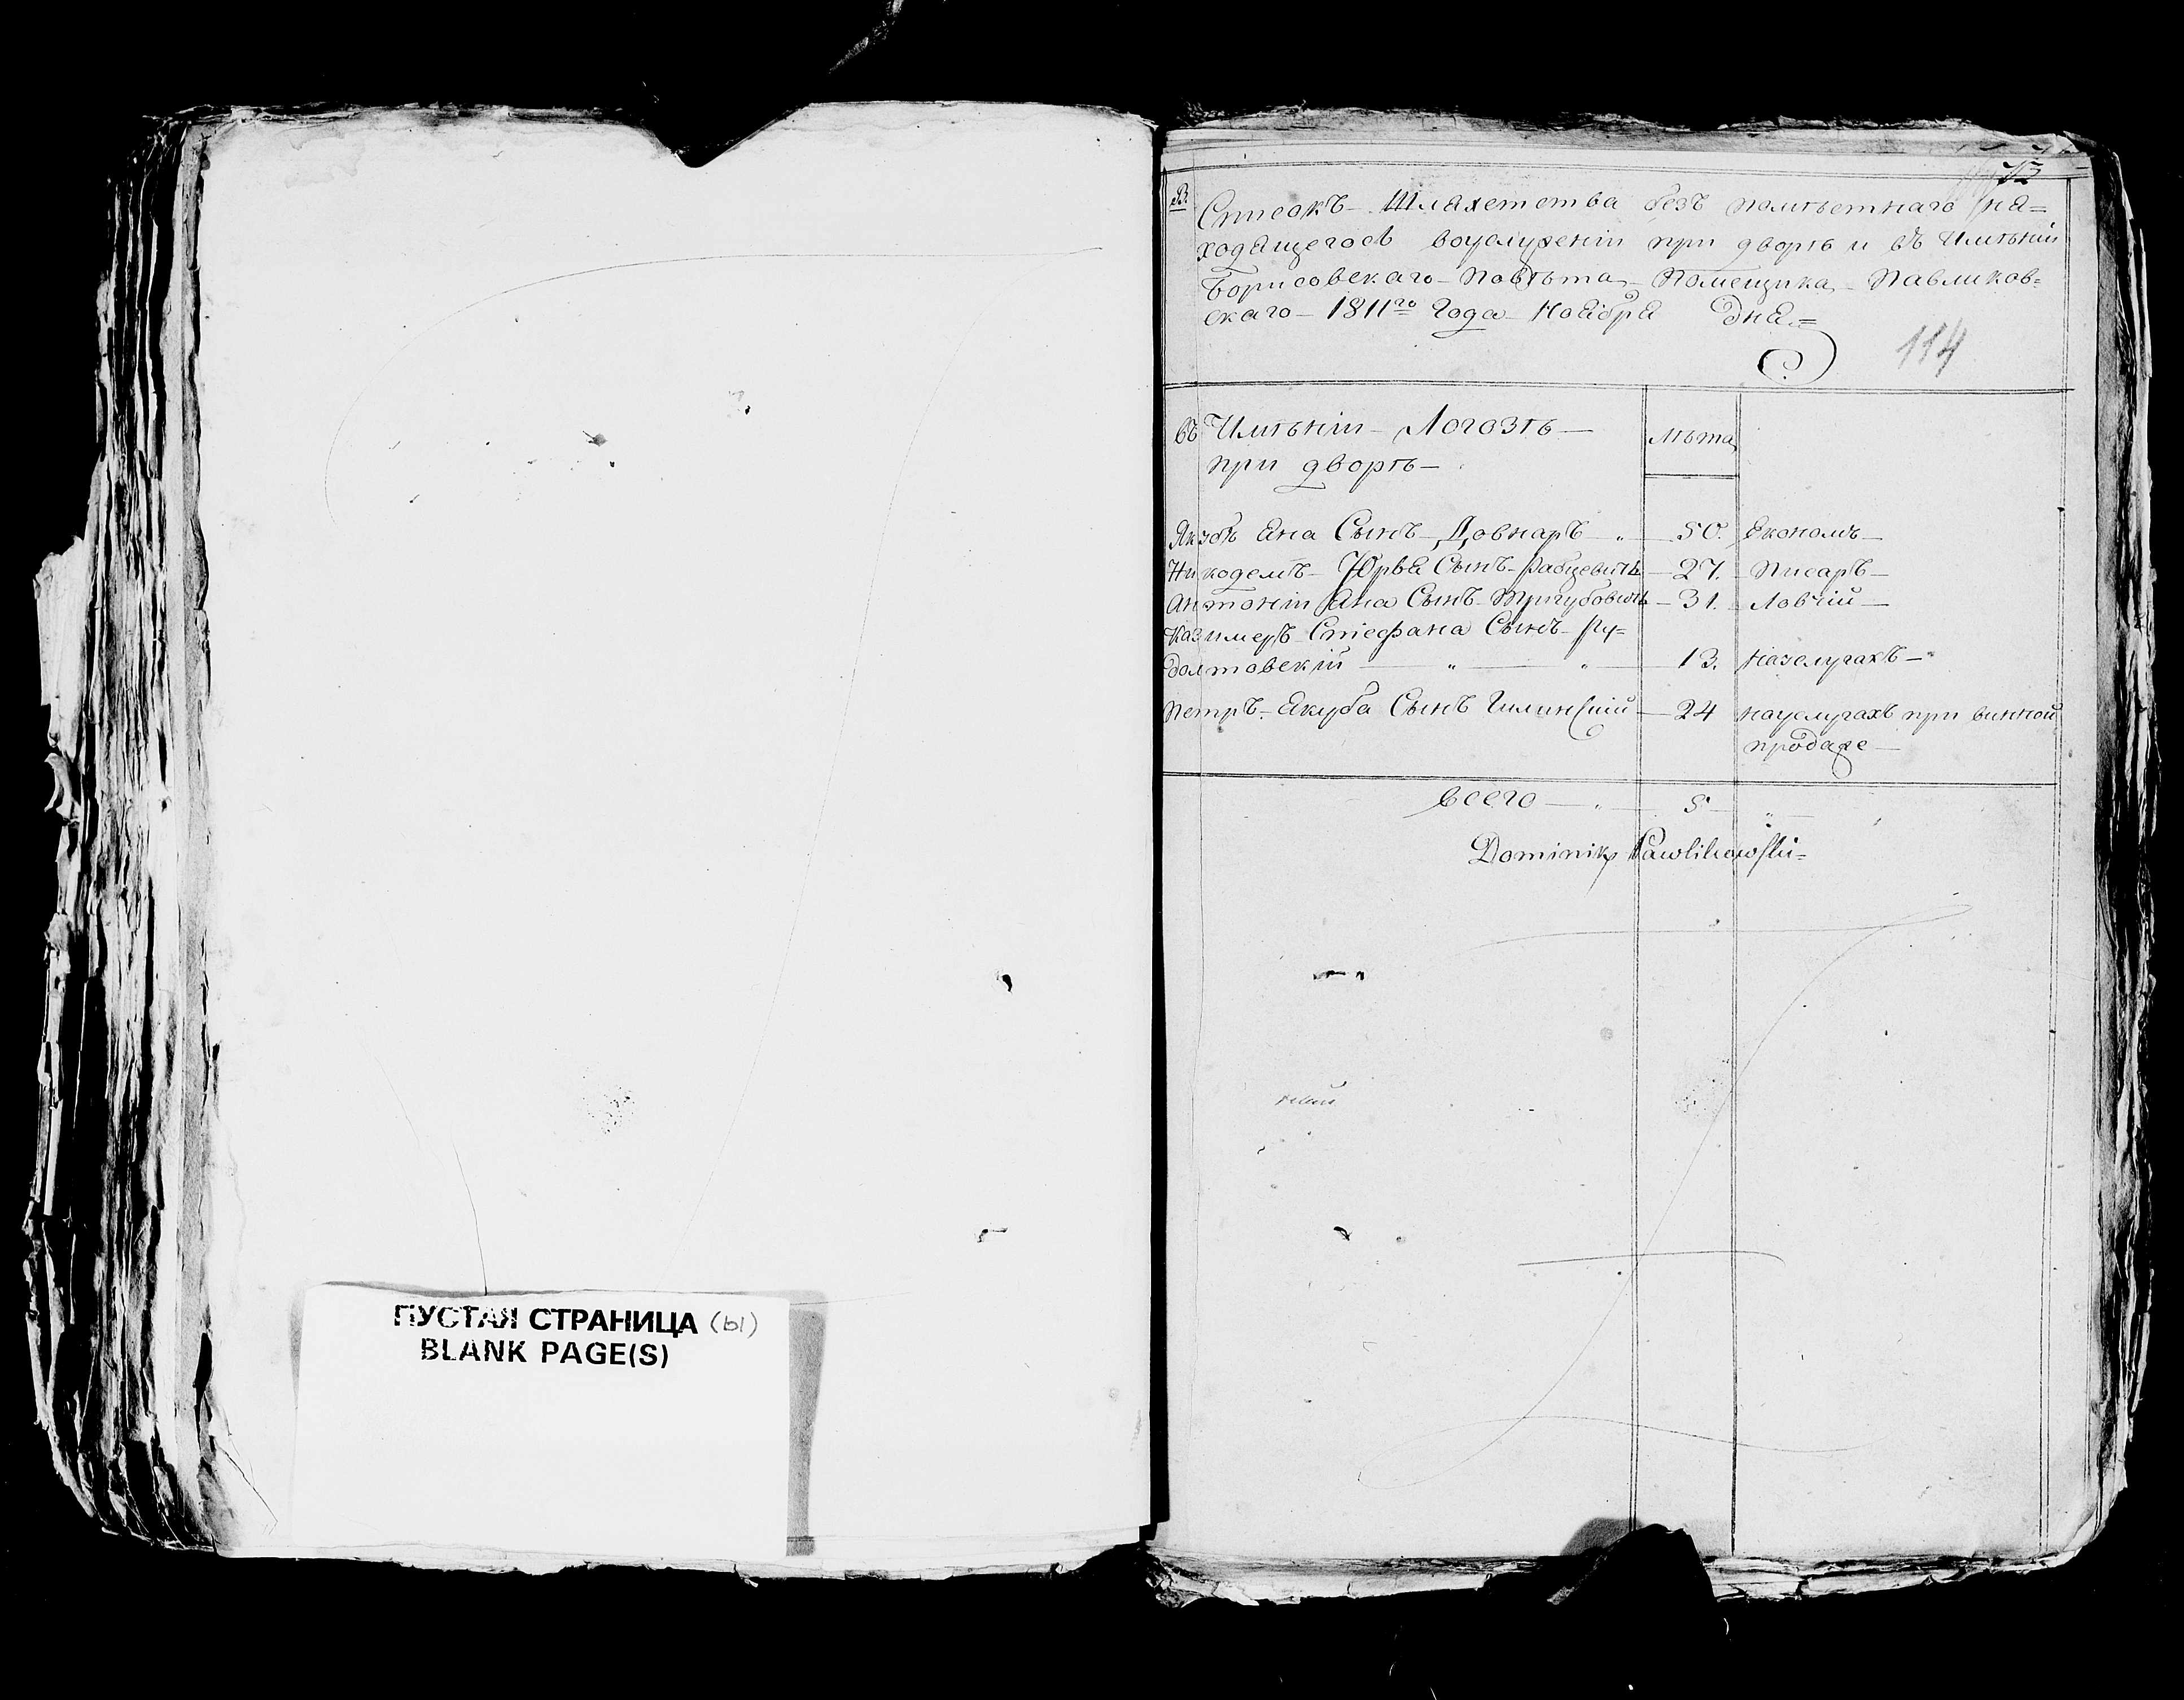 ПУСТАЯ СТРАНИЦА (ы)
BLANK PAGE(S)
Списокъ Шляхетства безъ помѣстнаго на=
ходящегося воуслуженіи при дворѣ и въ Имѣніи
Борисовскаго Повѣта Помещика Павликов=
скаго 1811го Года Ноября Дня
114
въ Имѣніи Логозѣ
при дворѣ
лѣта
Якобъ Яна Сынъ Довнаръ 50. Економъ
Никодемъ Юрья Сынъ Рабцевичъ 27. Писаръ
Антоній Яна Сынъ Тригубовичъ 31. Ловчій
Казимеръ Стефана Сынъ Ру=
долтовскій 13. науслугахъ
Петръ Якуба Сынъ Гилинскій 24 науслугахъ при винной
продаже
всего 5
Dominik Pawlikowski